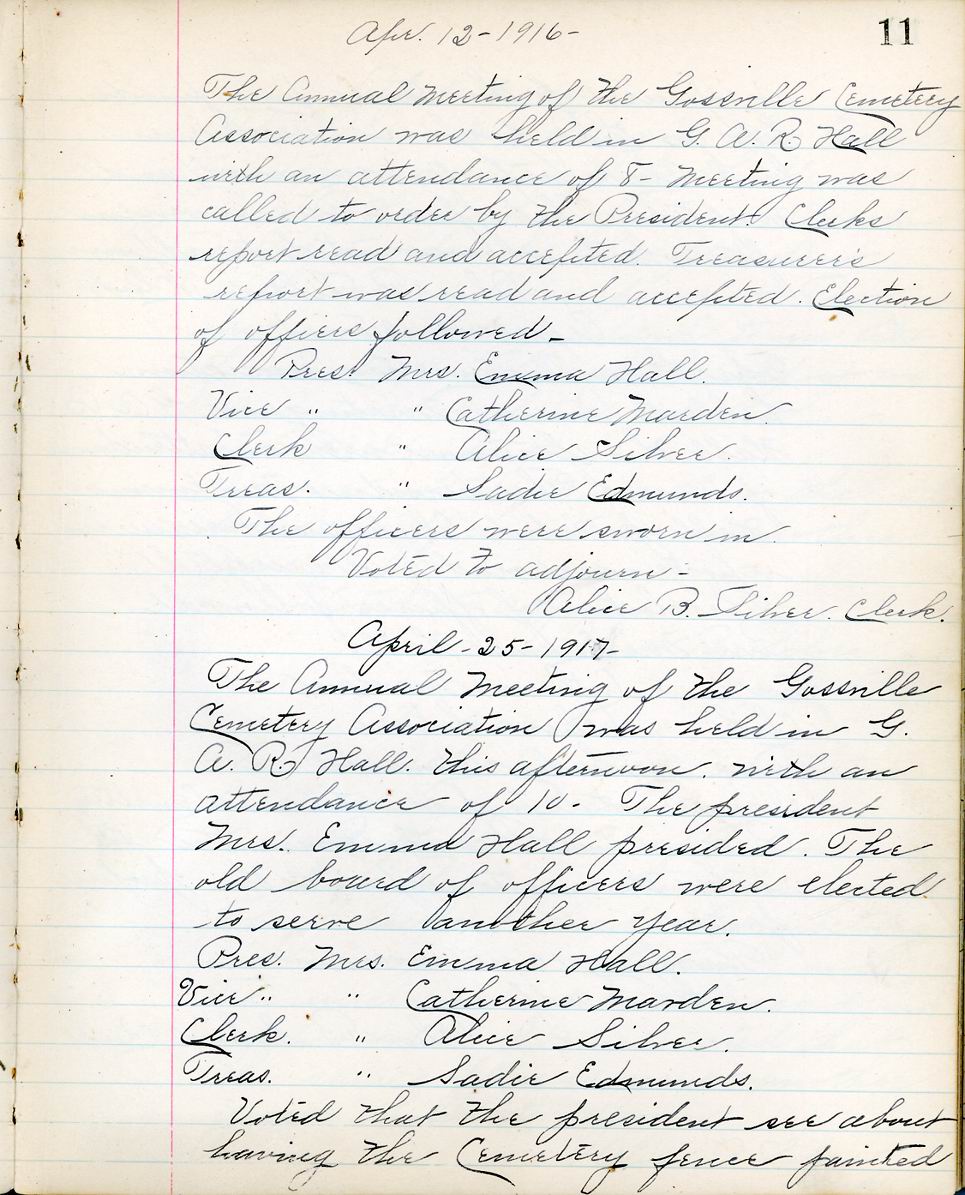 Apr. 12-1916-
11
The Annual Meeting of the Gossville Cemetery
Association was held in G. A. R. Hall
with an attendance of 8- Meeting was
called to order by the President. Clerks
report read and accepted. Treasurer's
report was read and accepted. Election
of officers followed-
Pres. Mrs. Emma Hall.
Vice " " Catherine Marden.
Clerk " Alice Silver.
Treas. " Sadie Edmunds.
The officers were sworn in.
Voted to adjourn-
Alice B. Silver. Clerk.
April-25-1917-
The Annual Meeting of the Gossville
Cemetery Association was held in G.
A. R. Hall. this afternoon. with an
attendance of 10- The president
Mrs. Emma Hall presided. The
old board of officers were elected
to serve another year.
Pres. Mrs. Emma Hall.
Vice " " Catherine Marden.
Clerk. " Alice Silver.
Treas. " Sadie Edmunds.
Voted that the president see about
having the Cemetery fence painted